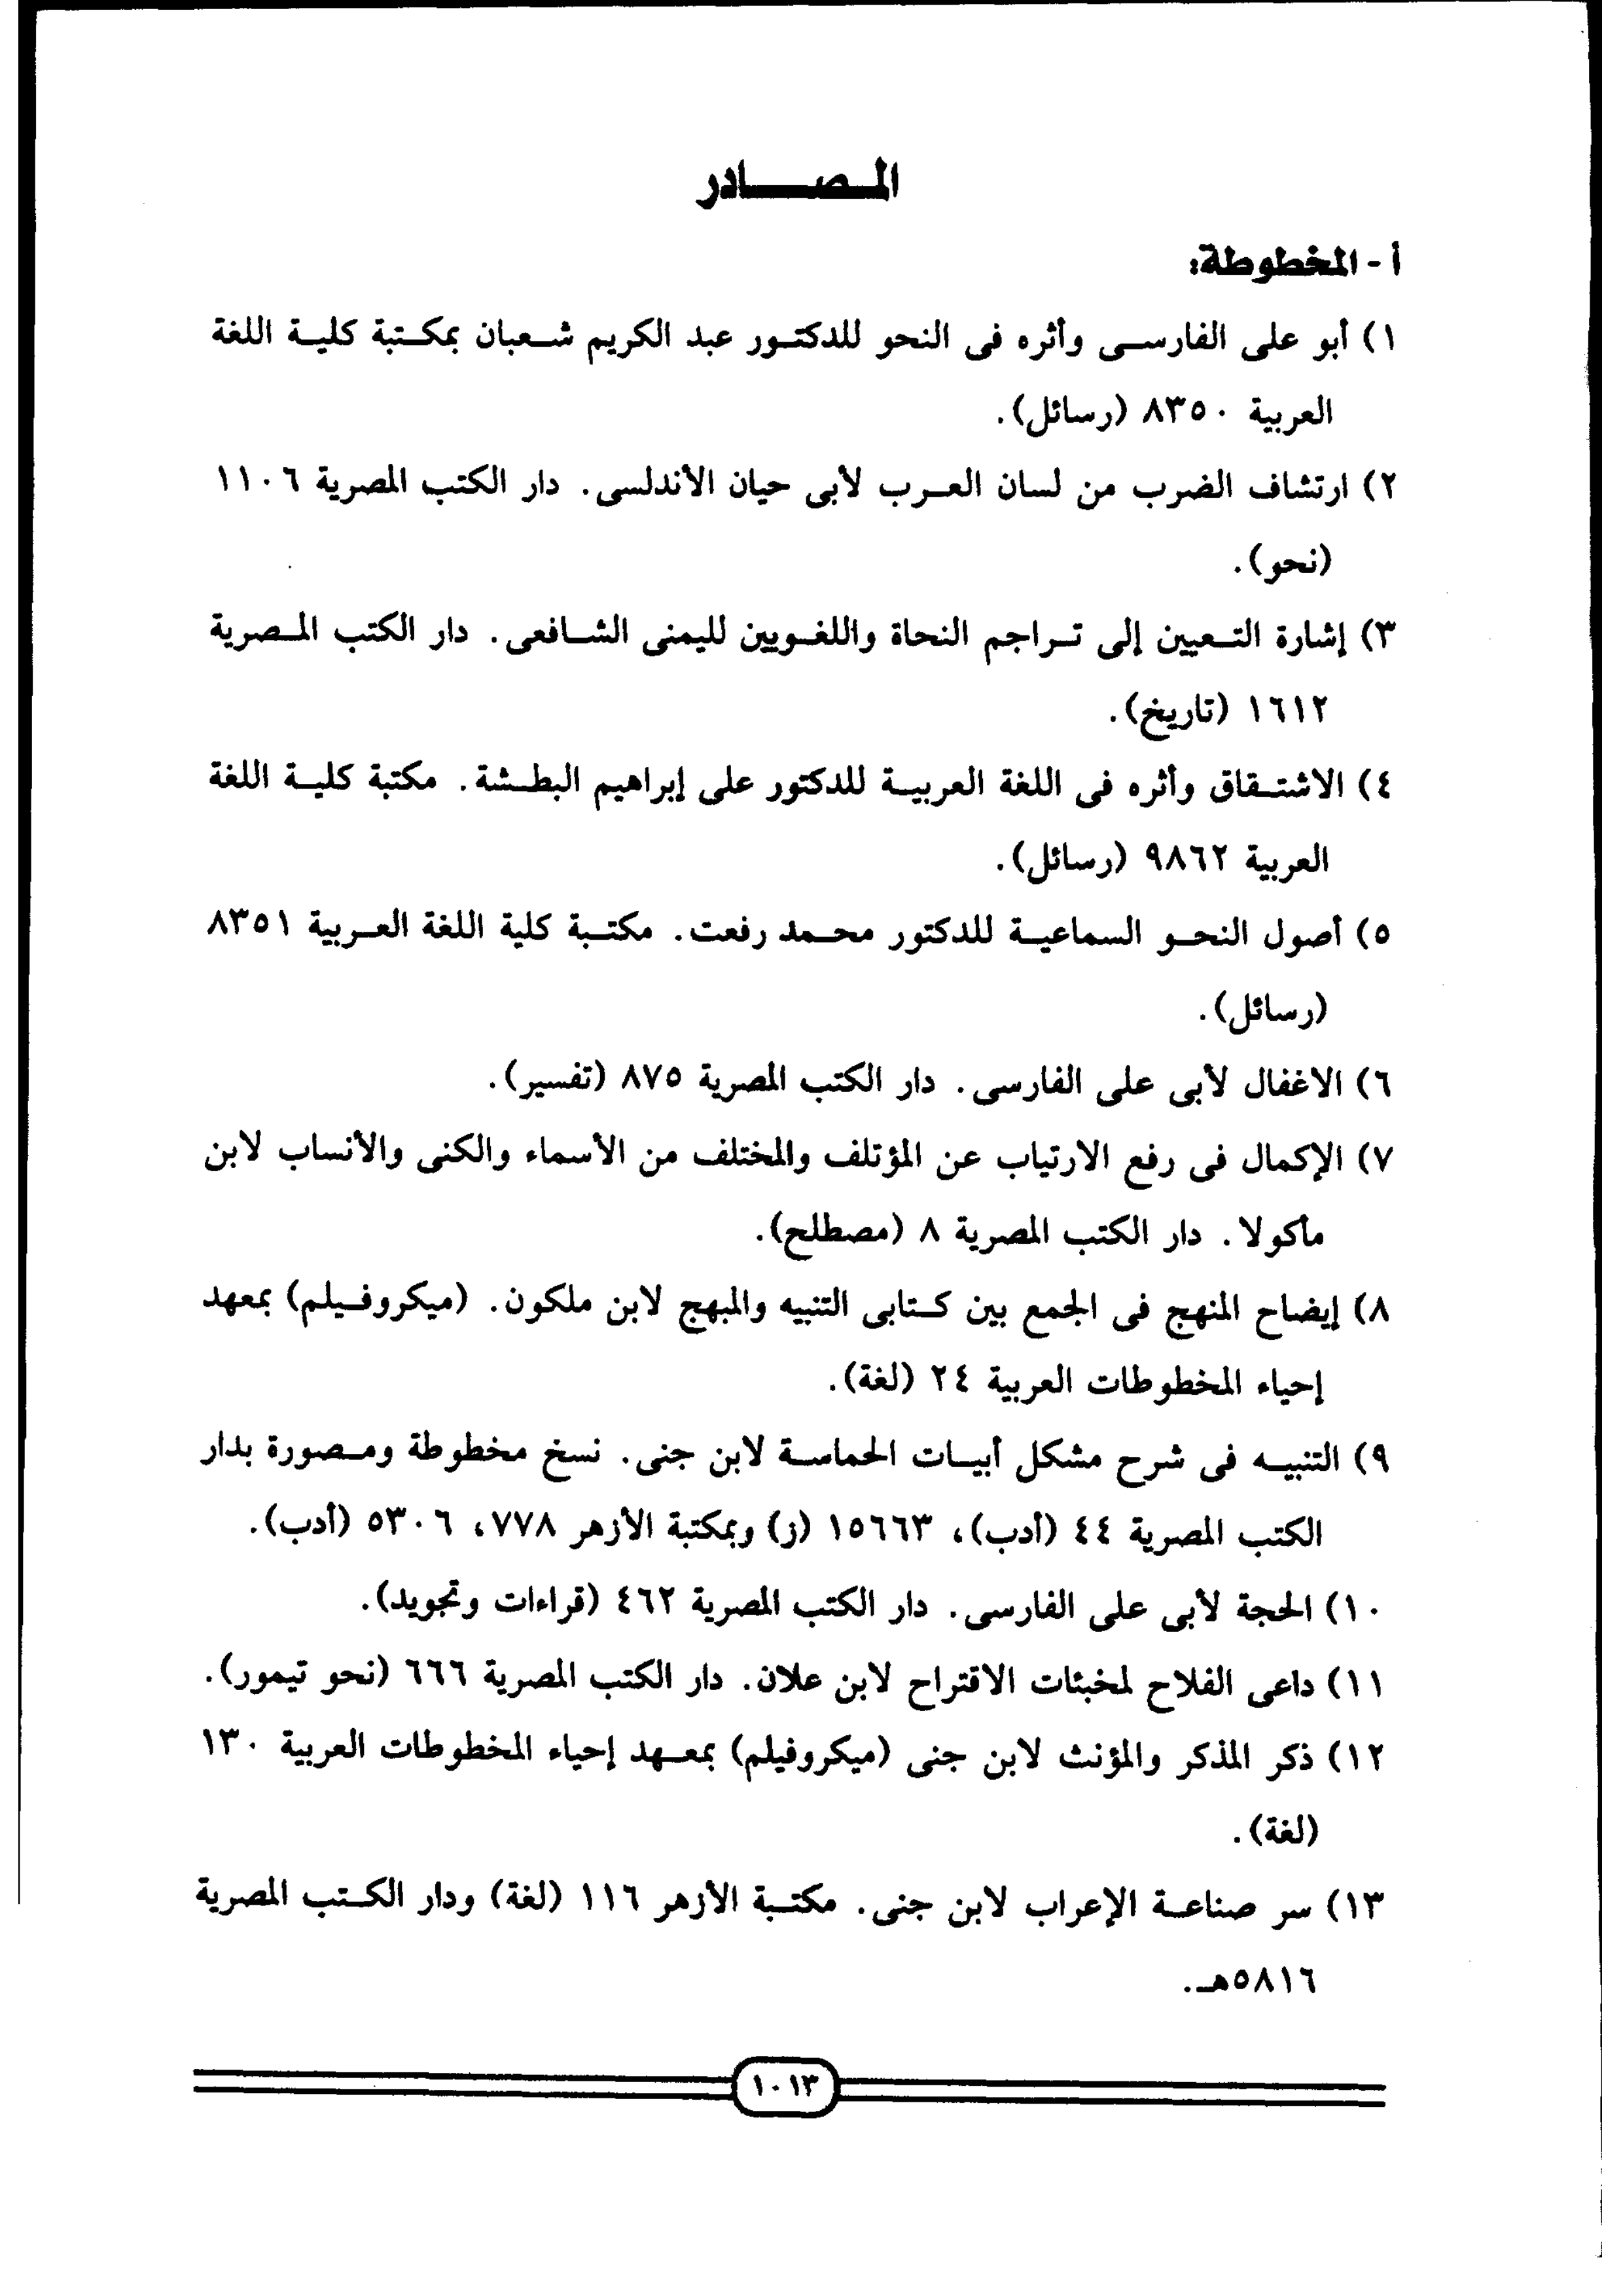 المصادر
أ - المخطوطة:
١) أبو على الفارسى وأثره فى النحو للدكتور عبد الكريم شعبان بمكتبة كلية اللغة
العربية ٨٣٥٠ (رسائل).
٢) ارتشاف الضرب من لسان العرب لأبى حيان الأندلسى. دار الكتب المصرية ١١٠٦
(نحو).
٣) إشارة التعيين إلى تراجم النحاة واللغويين لليمنى الشافعى. دار الكتب المصرية
١٦١٢ (تاريخ).
٤) الاشتقاق وأثره فى اللغة العربية للدكتور على إبراهيم البطشة. مكتبة كلية اللغة
العربية ٩٨٦٢ (رسائل).
٥) أصول النحو السماعية للدكتور محمد رفعت. مكتبة كلية اللغة العربية ٨٣٥١
(رسائل).
٦) الاغفال لأبى على الفارسى. دار الكتب المصرية ٨٧٥ (تفسير).
٧) الإكمال فى رفع الارتياب عن المؤتلف والمختلف من الأسماء والكنى والأنساب لابن
مأكولا. دار الكتب المصرية ٨ (مصطلح).
٨) إيضاح المنهج فى الجمع بين كتابى التنبيه والمبهج لابن ملكون. (ميكروفيلم) بمعهد
إحياء المخطوطات العربية ٢٤ (لغة).
٩) التنبيه فى شرح مشكل أبيات الحماسة لابن جنى. نسخ مخطوطة ومصورة بدار
الكتب المصرية ٤٤ (أدب)، ١٥٦٦٣ (ز) وبمكتبة الأزهر ٧٧٨، ٥٣٠٦ (أدب).
١٠) الحجة لأبى على الفارسى. دار الكتب المصرية ٤٦٢ (قراءات وتجويد).
١١) داعى الفلاح لمخبئات الاقتراح لابن علان. دار الكتب المصرية ٦٦٦ (نحو تيمور).
١٢) ذكر المذكر والمؤنث لابن جنى (ميكروفيلم) بمعهد إحياء المخطوطات العربية ١٣٠
(لغة).
١٣) سر صناعة الإعراب لابن جنى. مكتبة الأزهر ١١٦ (لغة) ودار الكتب المصرية
٥٨١٦هـ.
١٠١٣